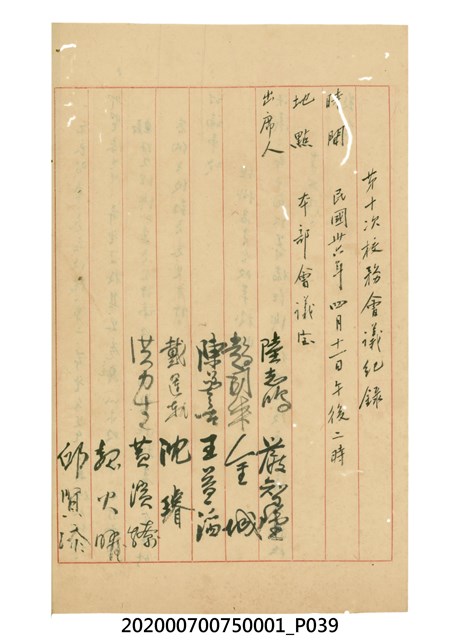 第十次校務會議紀錄
時間 民國卅六年四月十一日午後二時
地點 本部會議室
出席人
陸志鴻 嚴智鍾
金城
陳 王益滔
戴運軌 沈璿
洪力生 黃演燎
魏火曜
邱賢添
202000700750001_P039